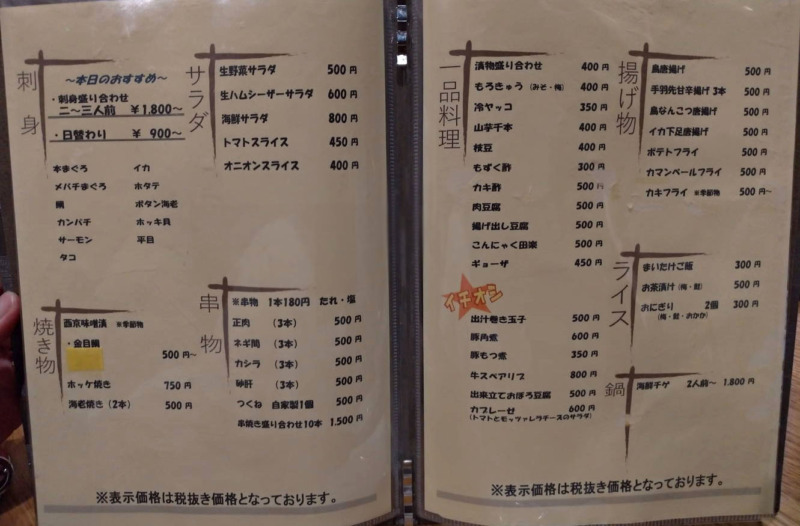 刺身
～本日のおすすめ～
・刺身盛り合わせ
二～三人前 ￥1,800～
・日替わり ￥ 900～
本まぐろ イカ
メバチまぐろ ホタテ
鯛 ボタン海老
カンパチ ホッキ貝
サーモン 平目
タコ
サラダ
生野菜サラダ 500 円
生ハムシーザーサラダ 600 円
海鮮サラダ 800 円
トマトスライス 450 円
オニオンスライス 400 円
焼き物
西京味噌漬 ※季節物
・金目鯛
500 円～
ホッケ焼き 750 円
海老焼き（2本） 500 円
串物
※串物 1本180円 たれ・塩
正肉 （3本） 500 円
ネギ間 （3本） 500 円
カシラ （3本） 500 円
砂肝 （3本） 500 円
つくね 自家製1個 500 円
串焼き盛り合わせ10本 1.500 円
※表示価格は税抜き価格となっております。
一品料理
漬物盛り合わせ 400 円
もろきゅう（みそ・梅） 400 円
冷ヤッコ 350 円
山芋千本 400 円
枝豆 400 円
もずく酢 300 円
カキ酢 500 円
肉豆腐 500 円
揚げ出し豆腐 500 円
こんにゃく田楽 500 円
ギョーザ 450 円
イチオシ
出汁巻き玉子 500 円
豚角煮 600 円
豚もつ煮 350 円
牛スペアリブ 800 円
出来立ておぼろ豆腐 500 円
カプレーゼ 600 円
（トマトとモッツァレラチーズのサラダ）
揚げ物
鳥唐揚げ 500 円
手羽先甘辛揚げ 3本 500 円
鳥なんこつ唐揚げ 500 円
イカ下足唐揚げ 500 円
ポテトフライ 500 円
カマンベールフライ 500 円
カキフライ ※季節物 500 円～
ライス
まいたけご飯 300 円
お茶漬け（梅・鮭） 500 円
おにぎり 2個 300 円
（梅・鮭・おかか）
鍋
海鮮チゲ 2人前～ 1.800 円
※表示価格は税抜き価格となっております。